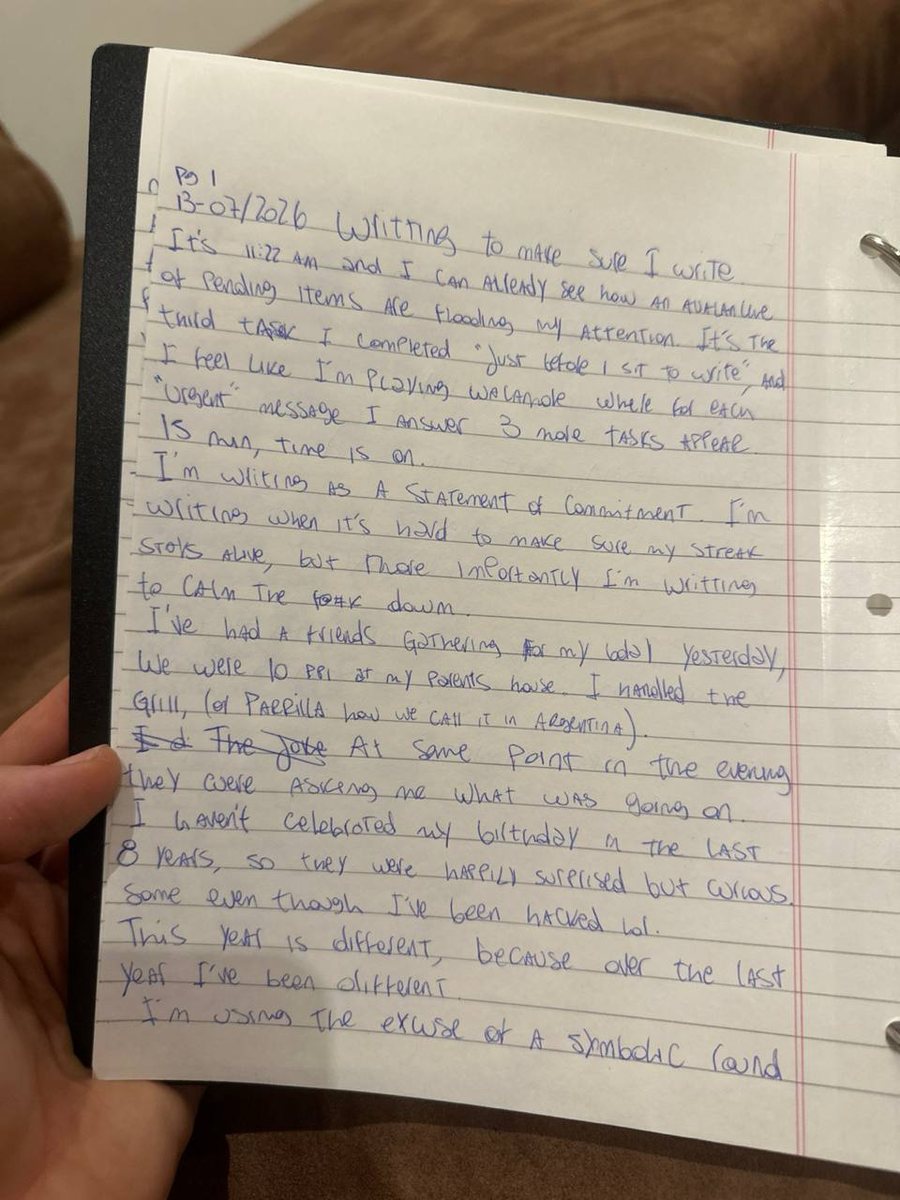 Pg 1
13-07/2026 Writting to make sure I write
It's 11:22 AM and I can already see how an avalanche
of pending items are flooding my attention. It's the
third task I completed "just before I sit to write", and
I feel like I'm playing wacamole where for each
"urgent" message I answer 3 more tasks appear.
15 min, time is on.
I'm writing as a statement of commitment. I'm
writing when it's hard to make sure my streak
stays alive, but more importantly I'm writting
to calm the down.
I've had a friends gathering for my bday yesterday,
We were 10 ppl at my parents house. I handled the
Grill, (or PARRILLA how we call it in ARGENTINA).
I d The Joke At some point in the evening
they were asking me what was going on.
I haven't celebrated my birthday in the last
8 years, so they were happily surprised but curious.
Some even though I've been hacked lol.
This year is different, because over the last
year I've been different.
I'm using the excuse of a symbolic round